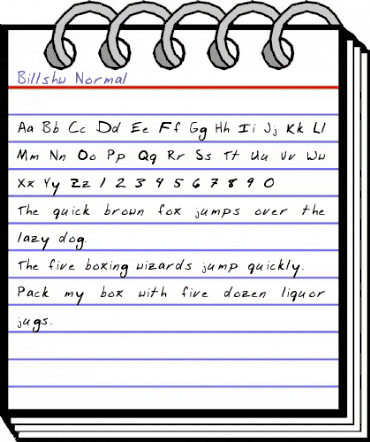 Billshw Normal
Aa Bb Cc Dd Ee Ff Gg Hh Ii Jj Kk Ll
Mm Nn Oo Pp Qq Rr Ss Tt Uu Vv Ww
Xx Yy Zz 1 2 3 4 5 6 7 8 9 0
The quick brown fox jumps over the
lazy dog.
The five boxing wizards jump quickly.
Pack my box with five dozen liquor
jugs.